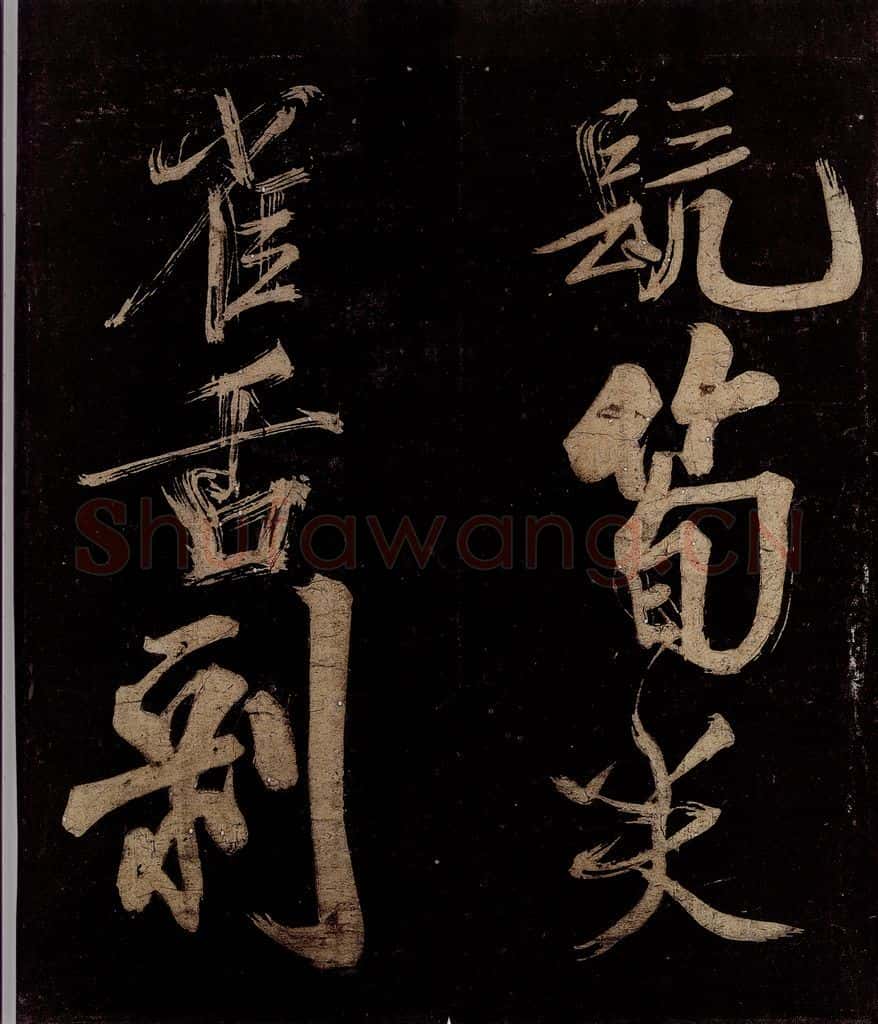 髡筍尖
雀舌剥
Shufawang.CN